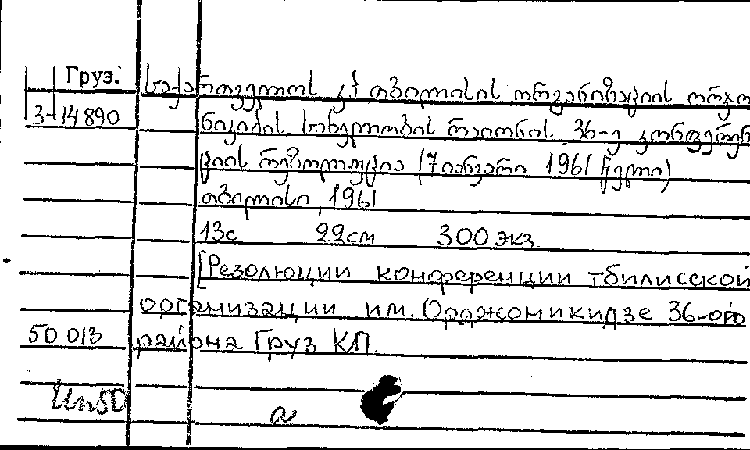 Груз.
საქართველოს კპ თბილისის ორგანიზაციის ორჯო
3-14890
ნიკიძის სახელობის რაიონის 36-ე კონფერენ
ციის რეზოლუცია (7 იანვარი 1961 წელი)
თბილისი 1961
13с 22см 300 экз.
[Резолюции конференции тбилисской
организации им. Орджоникидзе 36-ого
50 013 района Груз КП.